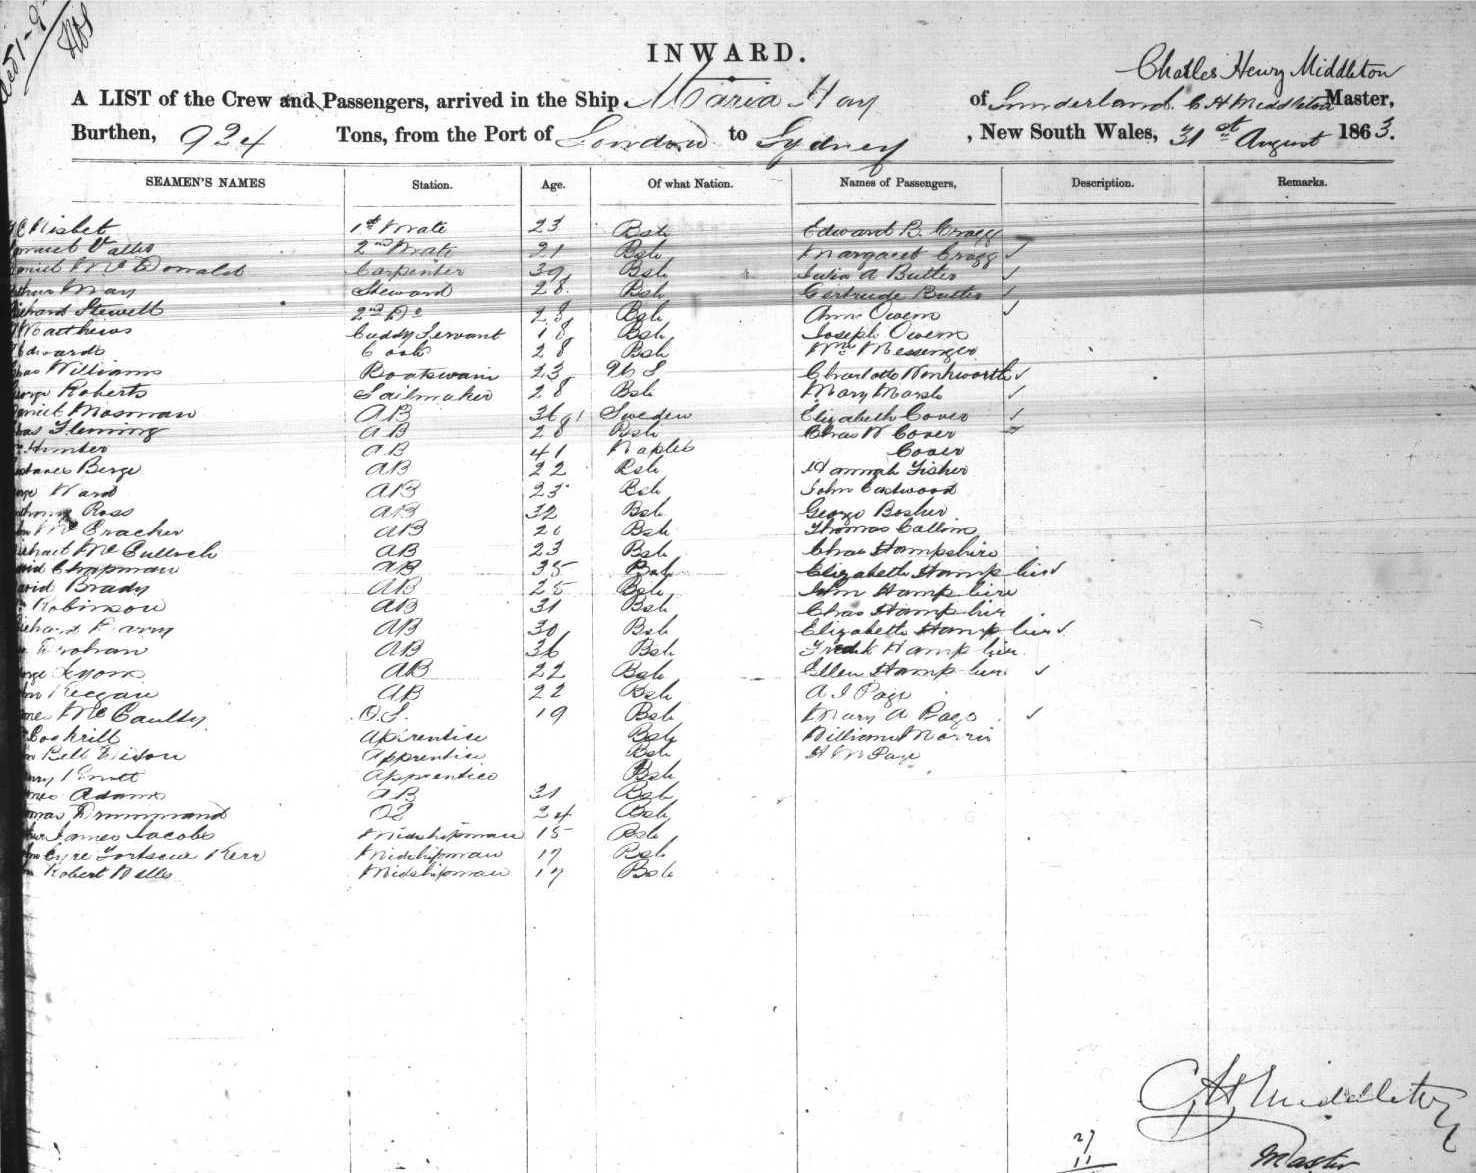 INWARD.
Charles Henry Middleton
A LIST of the Crew and Passengers, arrived in the Ship Maria Hay of Sunderland C H Middleton Master,
Burthen, 924 Tons, from the Port of London to Sydney, New South Wales, 31st August 1863.
SEAMEN'S NAMES Station. Age. Of what Nation. Names of Passengers, Description. Remarks.
Nisbet 1st Mate 23 Bsh Edward B. Cragg
2nd Mate 21 Bsh Margaret Cragg ✓
McDonald Carpenter 39 Bsh Julia A Butler ✓
May Steward 28 Bsh Gertrude Butler ✓
Stewell 2nd Do 28 Bsh Ann Owem ✓
Matthews Cuddy Servant 18 Bsh Joseph Owem
Edwards Cook 28 Bsh Wm Messenger
Williams Boatswain 23 Charlotte Wenkworth ✓
Roberts Sailmaker 28 Bsh Mary Marsh ✓
Mosman AB 36 Sweden Elizabeth Cover ✓
Fleming AB 28 Bsh Chas W Cover
Hunter AB 41 Naples Cover
Berge AB 22 Bsh Hannah Fisher
Ward AB 23 Bsh John Eastwood
Ross AB 32 Bsh George Bosher
McEracher AB Bsh Thomas Callim
McCulloch AB 23 Bsh Chas Hampshire
Chapman AB 35 Bsh Elizabeth Hampshire ✓
Brady AB 25 Bsh John Hampshire
Robinson AB 31 Bsh Chas Hampshire
AB 30 Bsh Elizabeth Hampshire ✓
Drohan AB 36 Bsh Fredk Hampshire
Lyom AB 22 Bsh Ellen Hampshire ✓
Keegan AB 22 Bsh A I Page
McCaulty O.S. 19 Bsh Mary A Page ✓
Cockrill Apprentice Bsh William Morris
Bell Apprentice Bsh H M Page
Apprentice Bsh
Adams AB 31 Bsh
Drummond OS 24 Bsh
James Jacobs Midshipman 15 Bsh
Eyre Fortescue Kerr Midshipman 17 Bsh
Robert Midshipman 17 Bsh
C H Middleton
Master
27
11